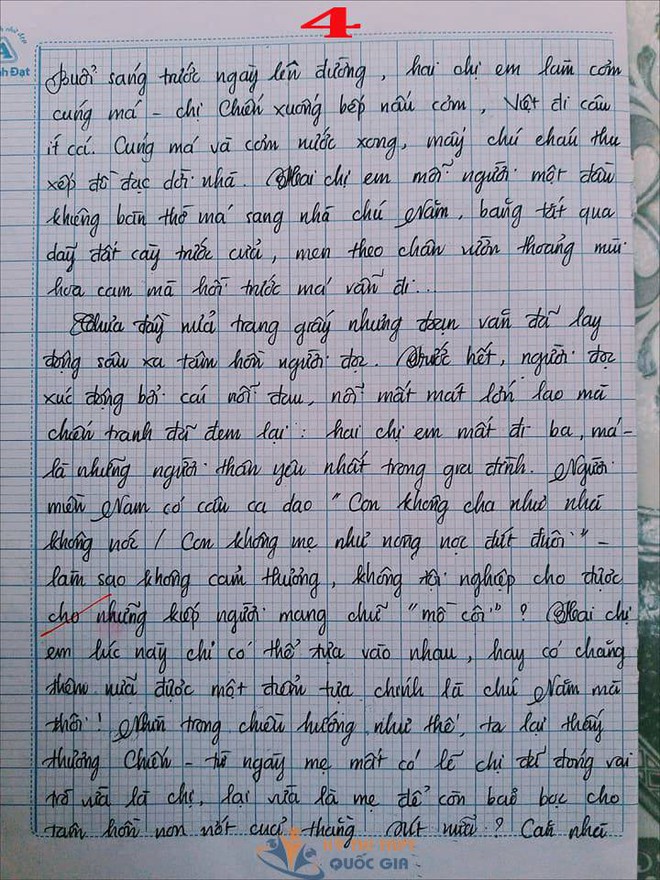 4
h Đạt
Buổi sáng trước ngày lên đường, hai chị em làm cơm
cúng má - chị Chiến xuống bếp nấu cơm, Việt đi câu
ít cá. Cúng má và cơm nước xong, mấy chú cháu thu
xếp đồ đạc dời nhà. Hai chị em mỗi người một đầu
khiêng bàn thờ má sang nhà chú Năm, băng tắt qua
dãy đất cày trước cửa, men theo chân vườn thoảng mùi
hoa cam mà hồi trước má vẫn đi...
Chưa đầy nửa trang giấy nhưng đoạn văn đã lay
động sâu xa tâm hồn người đọc. Trước hết, người đọc
xúc động bởi cái nỗi đau, nỗi mất mát lớn lao mà
chiến tranh đã đem lại: hai chị em mất đi ba, má -
là những người thân yêu nhất trong gia đình. Người
miền Nam có câu ca dao "Con không cha như nhà
không nóc / Con không mẹ như nòng nọc đứt đuôi" -
làm sao không cảm thương, không tội nghiệp cho được
cho những kiếp người mang chữ "mồ côi"? Hai chị
em lúc này chỉ có thể tựa vào nhau, hay có chăng
thêm nữa được một điểm tựa chính là chú Năm mà
thôi! Nhìn trong chiều hướng như thế, ta lại thấy
thương Chiến - từ ngày mẹ mất có lẽ chị đã đóng vai
trò vừa là chị, lại vừa là mẹ để còn bao bọc cho
tâm hồn non nớt của thằng út nữa? Căn nhà
KỲ THI THPT
QUỐC GIA